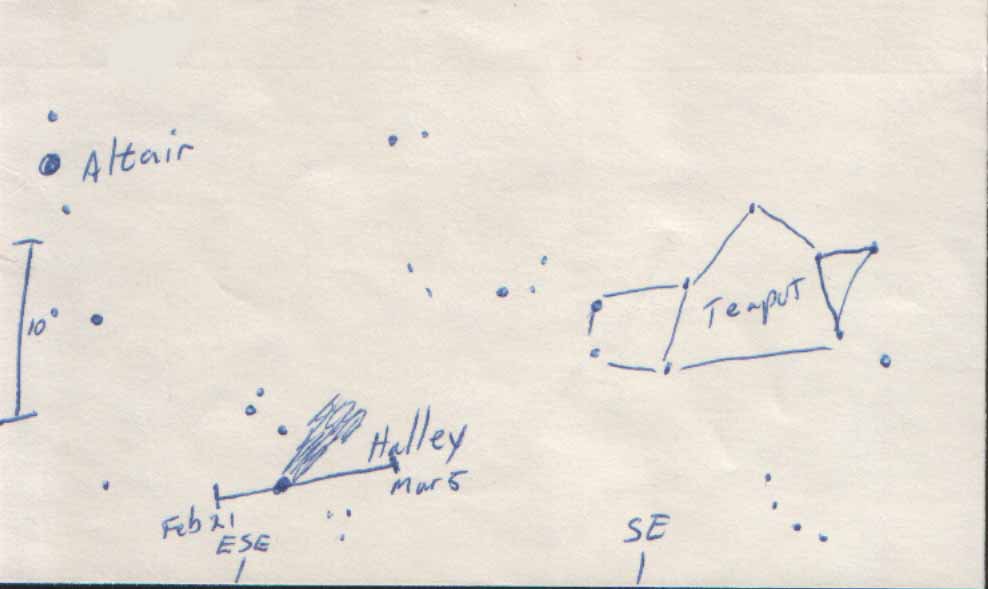 Altair
10°
Teapot
Halley
Mar 5
Feb 21
ESE
SE